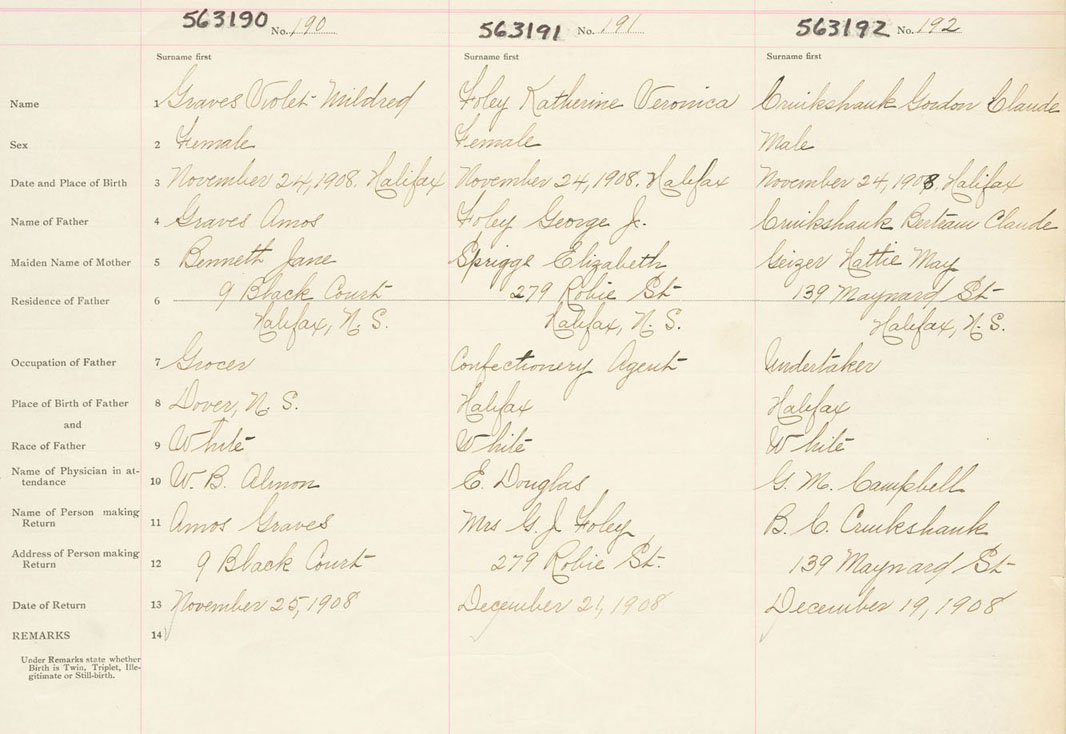 563190 No. 190 563191 No. 191 563192 No. 192
Surname first Surname first Surname first
Name 1 Graves Violet Mildred Foley Katherine Veronica Cruikshank Gordon Claude
Sex 2 Female Female Male
Date and Place of Birth 3 November 24, 1908. Halifax November 24, 1908. Halifax November 24, 1908 Halifax
Name of Father 4 Graves Amos Foley George J. Cruikshank Bertram Claude
Maiden Name of Mother 5 Benneth Jane Spriggs Elizabeth Geizer Hattie May
Residence of Father 6 9 Black Court 279 Robie St 139 Maynard St
Halifax, N. S. Halifax, N. S. Halifax, N. S.
Occupation of Father 7 Grocer Confectionery Agent Undertaker
Place of Birth of Father 8 Dover, N. S. Halifax Halifax
and
Race of Father 9 White White White
Name of Physician in at-
tendance 10 W. B. Almon E. Douglas G. M. Campbell
Name of Person making
Return 11 Amos Graves Mrs G. J. Foley B. C. Cruikshank
Address of Person making
Return 12 9 Black Court 279 Robie St. 139 Maynard St
Date of Return 13 November 25, 1908 December 21, 1908 December 19, 1908
REMARKS 14
Under Remarks state whether
Birth is Twin, Triplet, Ille-
gitimate or Still-birth.